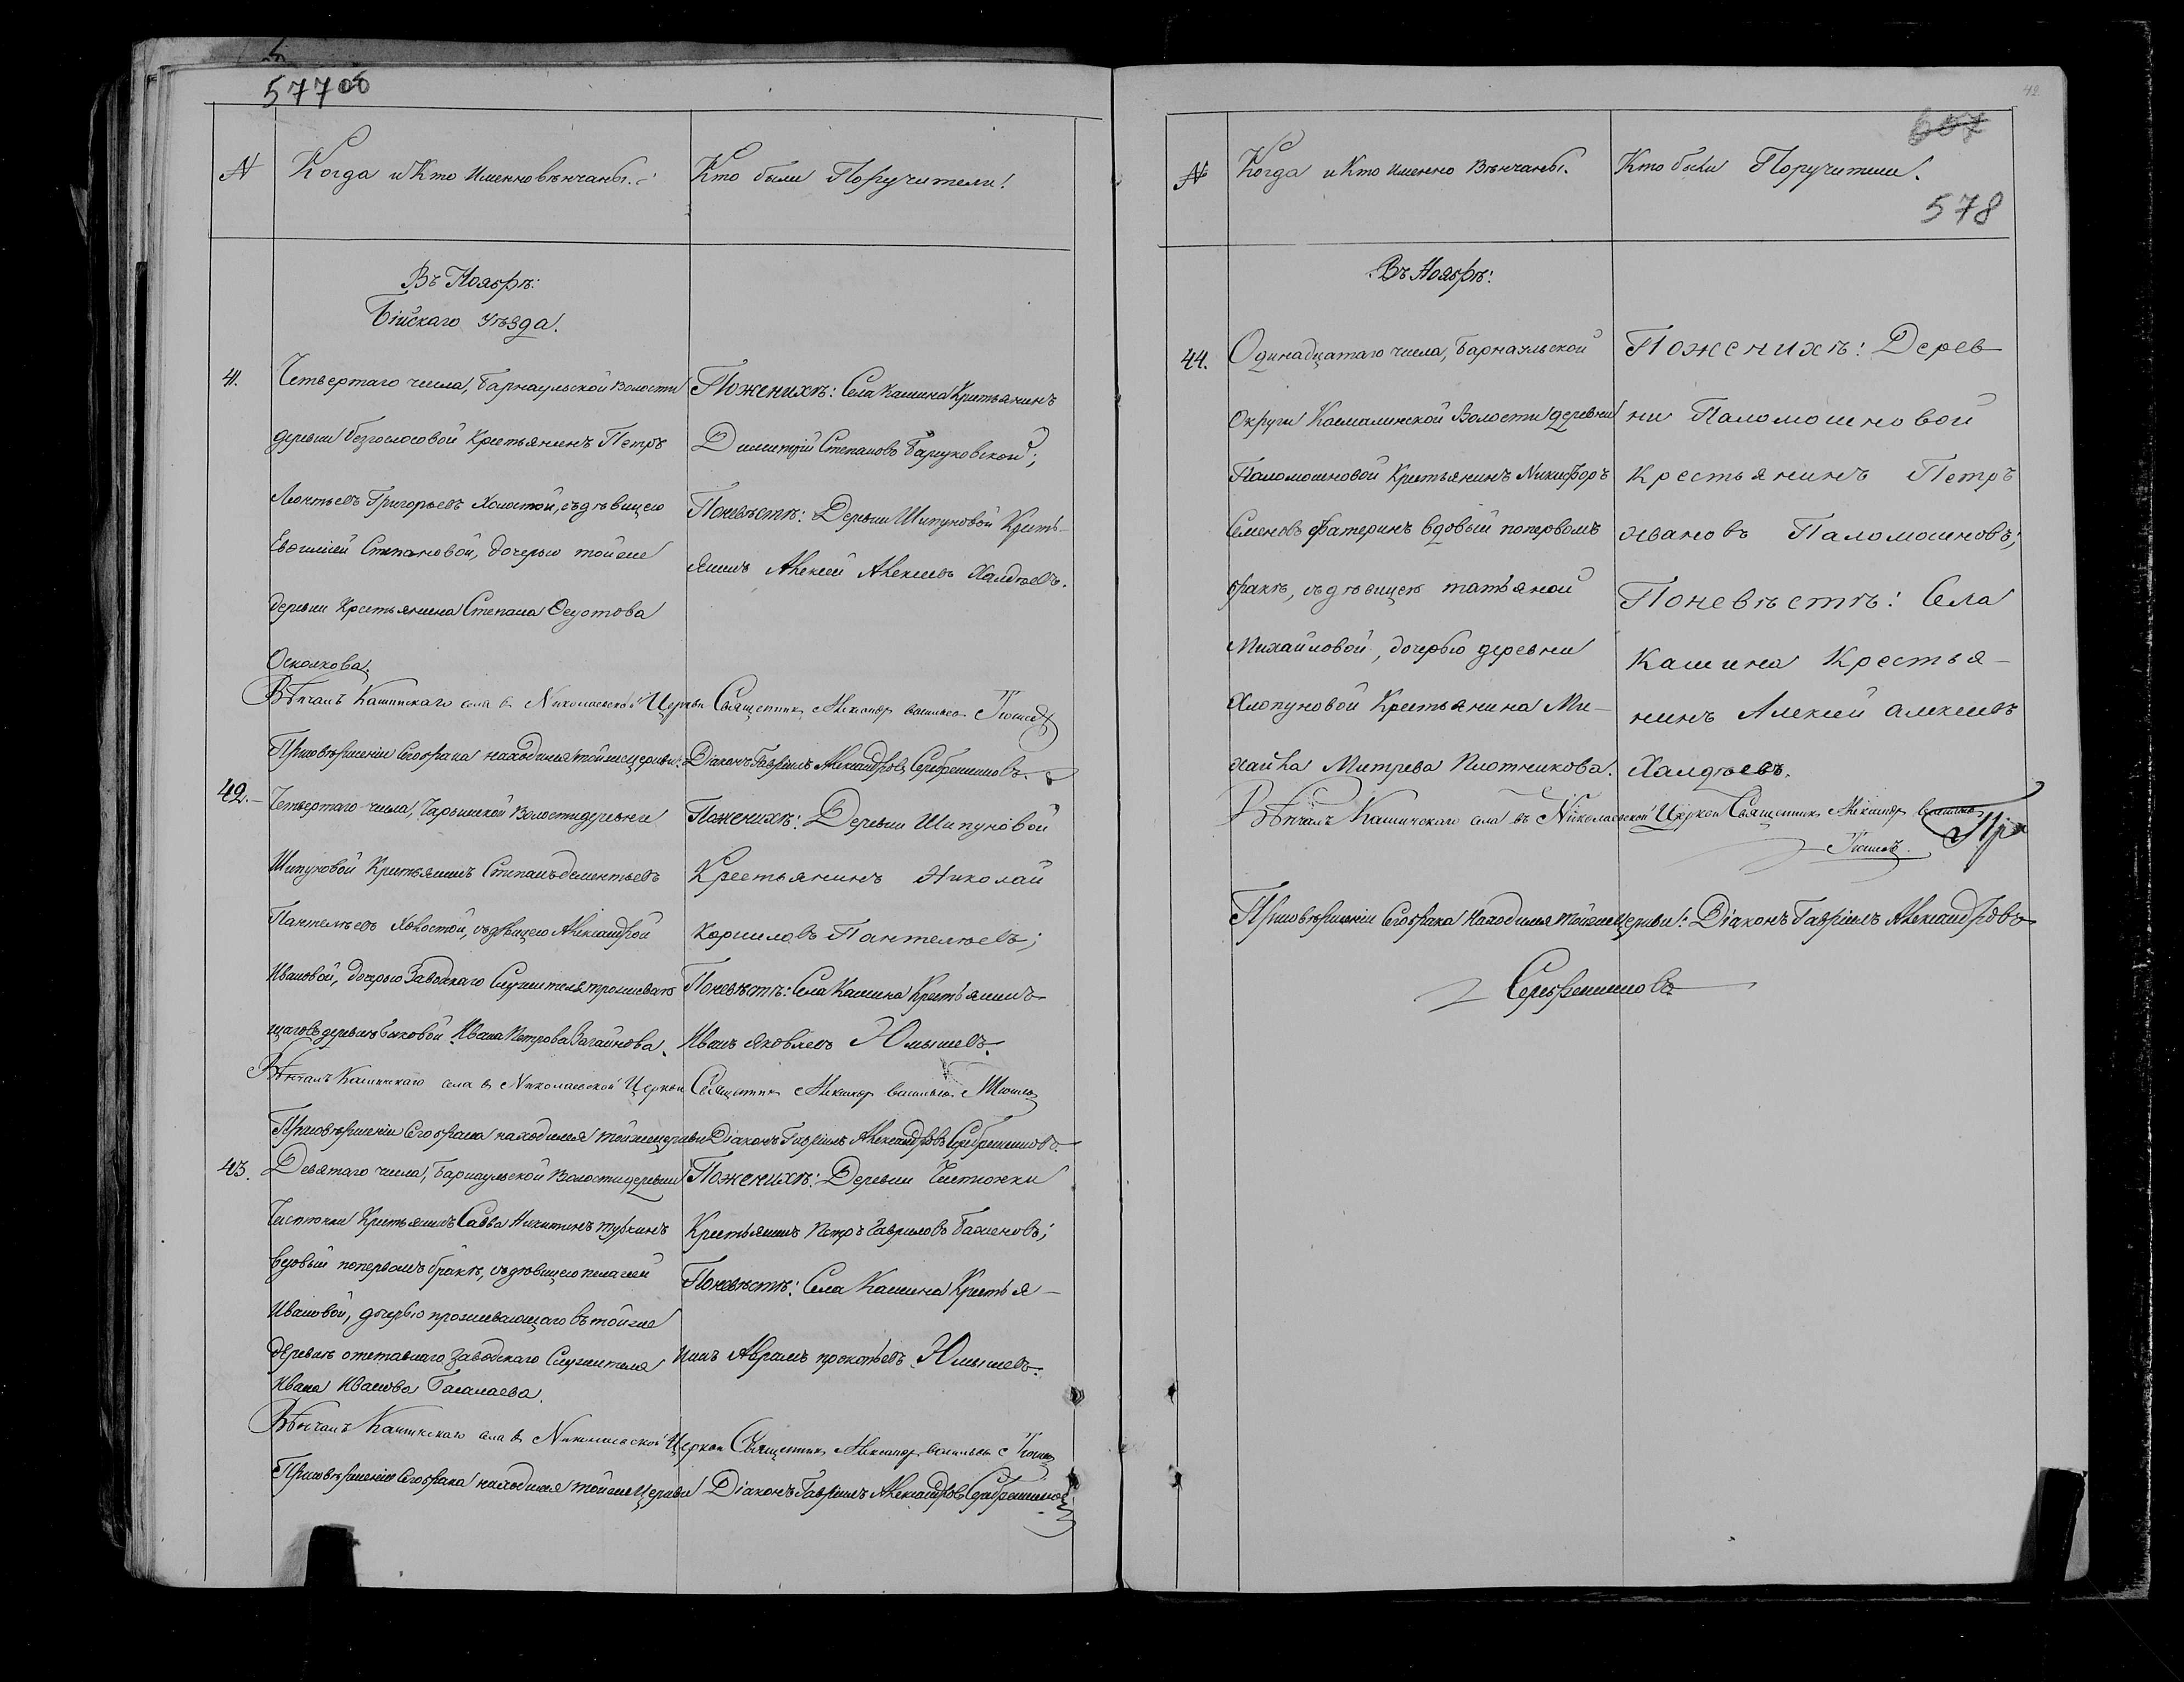 577об
№ Когда и Кто Именно вѣнчаны. Кто были Поручители.
Въ Ноябрѣ:
Бійскаго уѣзда.
41. Четвертаго числа, Барнаульской Волости
деревни Безголосовой Крестьянинъ Петръ
Леонтьевъ Григорьевъ Холостой, съ дѣвицею
Евѳиміей Степановой, дочерью тойже
деревни Крестьянина Степана Ѳедотова
Осколкова.
Поженихѣ: Села Кашина Крестьянинъ
Димитрій Степановъ
Поневѣстѣ: Деревни Шипуновой Кресть-
янинъ Алексей Алексеевъ Халдѣевъ.
Вѣнчалъ Кашинскаго села въ Николаевской Церкви Священникъ Александръ Васильевъ
Присовершеніи Сего брака находился тойже церкви: Діаконъ Гавріилъ Александровъ Серебренниковъ.
42. Четвертаго числа, Чарышской Волости деревни
Шипуновой Крестьянинъ Степанъ Дементьевъ
Пантелѣевъ Холостой, съ дѣвицею Александрой
Ивановой, дочерью Заводскаго Служителя проживаю
щаго въ деревнѣ Быковой Ивана Петрова Вагайнова.
Поженихѣ: Деревни Шипуновой
Крестьянинъ Николай
Корниловъ Пантелѣевъ;
Поневѣстѣ: Села Кашина Крестьянинъ
Иванъ Яковлевъ Юмышевъ.
Вѣнчалъ Кашинскаго села въ Николаевской Церкви Священникъ Александръ Васильевъ
Присовершеніи Сего брака находился тойже церкви Діаконъ Гавріилъ Александровъ Серебренниковъ.
43. Девятаго числа, Барнаульской Волости деревни
Чистюнки Крестьянинъ Савва Никитинъ Туркинъ
вдовый попервомъ бракѣ, съ дѣвицею пелагеей
Ивановой, дочерью проживающаго въ тойже
деревнѣ отставнаго Заводскаго Служителя
Ивана Иванова
Поженихѣ: Деревни Чистюнки
Крестьянинъ Петръ Гавриловъ Баженовъ;
Поневѣстѣ: Села Кашина Крестья-
нинъ Аврамъ прокопьевъ Юмышевъ.
Вѣнчалъ Кашинскаго села въ Николаевской Церкви Священникъ Александръ Васильевъ
Присовершеніи Сего брака находился тойже Церкви Діаконъ Гавріилъ Александровъ Серебренниковъ
42
607
№ Когда и Кто Именно Вѣнчаны. Кто были Поручители.
578
Въ Ноябрѣ:
44. Одинадцатаго числа, Барнаульской
Округи Касмалинской Волости деревни
Паломошновой Крестьянинъ Никифоръ
Семеновъ Фатеринъ вдовый попервомъ
бракѣ, съ дѣвицею татьяной
Михайловой, дочерью деревни
Хлопуновой Крестьянина Ми-
хайла Митрева Плотникова.
Поженихѣ: Дерев
ни Паломошновой
Крестьянинъ Петръ
Ивановъ Паломошновъ;
Поневѣстѣ: Села
Кашина Крестья-
нинъ Алексей алексеевъ
Халдѣевъ.
Вѣнчалъ Кашинскаго села въ Николаевской Церкви Священникъ Александръ Васильевъ
Присовершеніи Сего брака Находился тойже Церкви: Діаконъ Гавріилъ Александровъ
Серебренниковъ